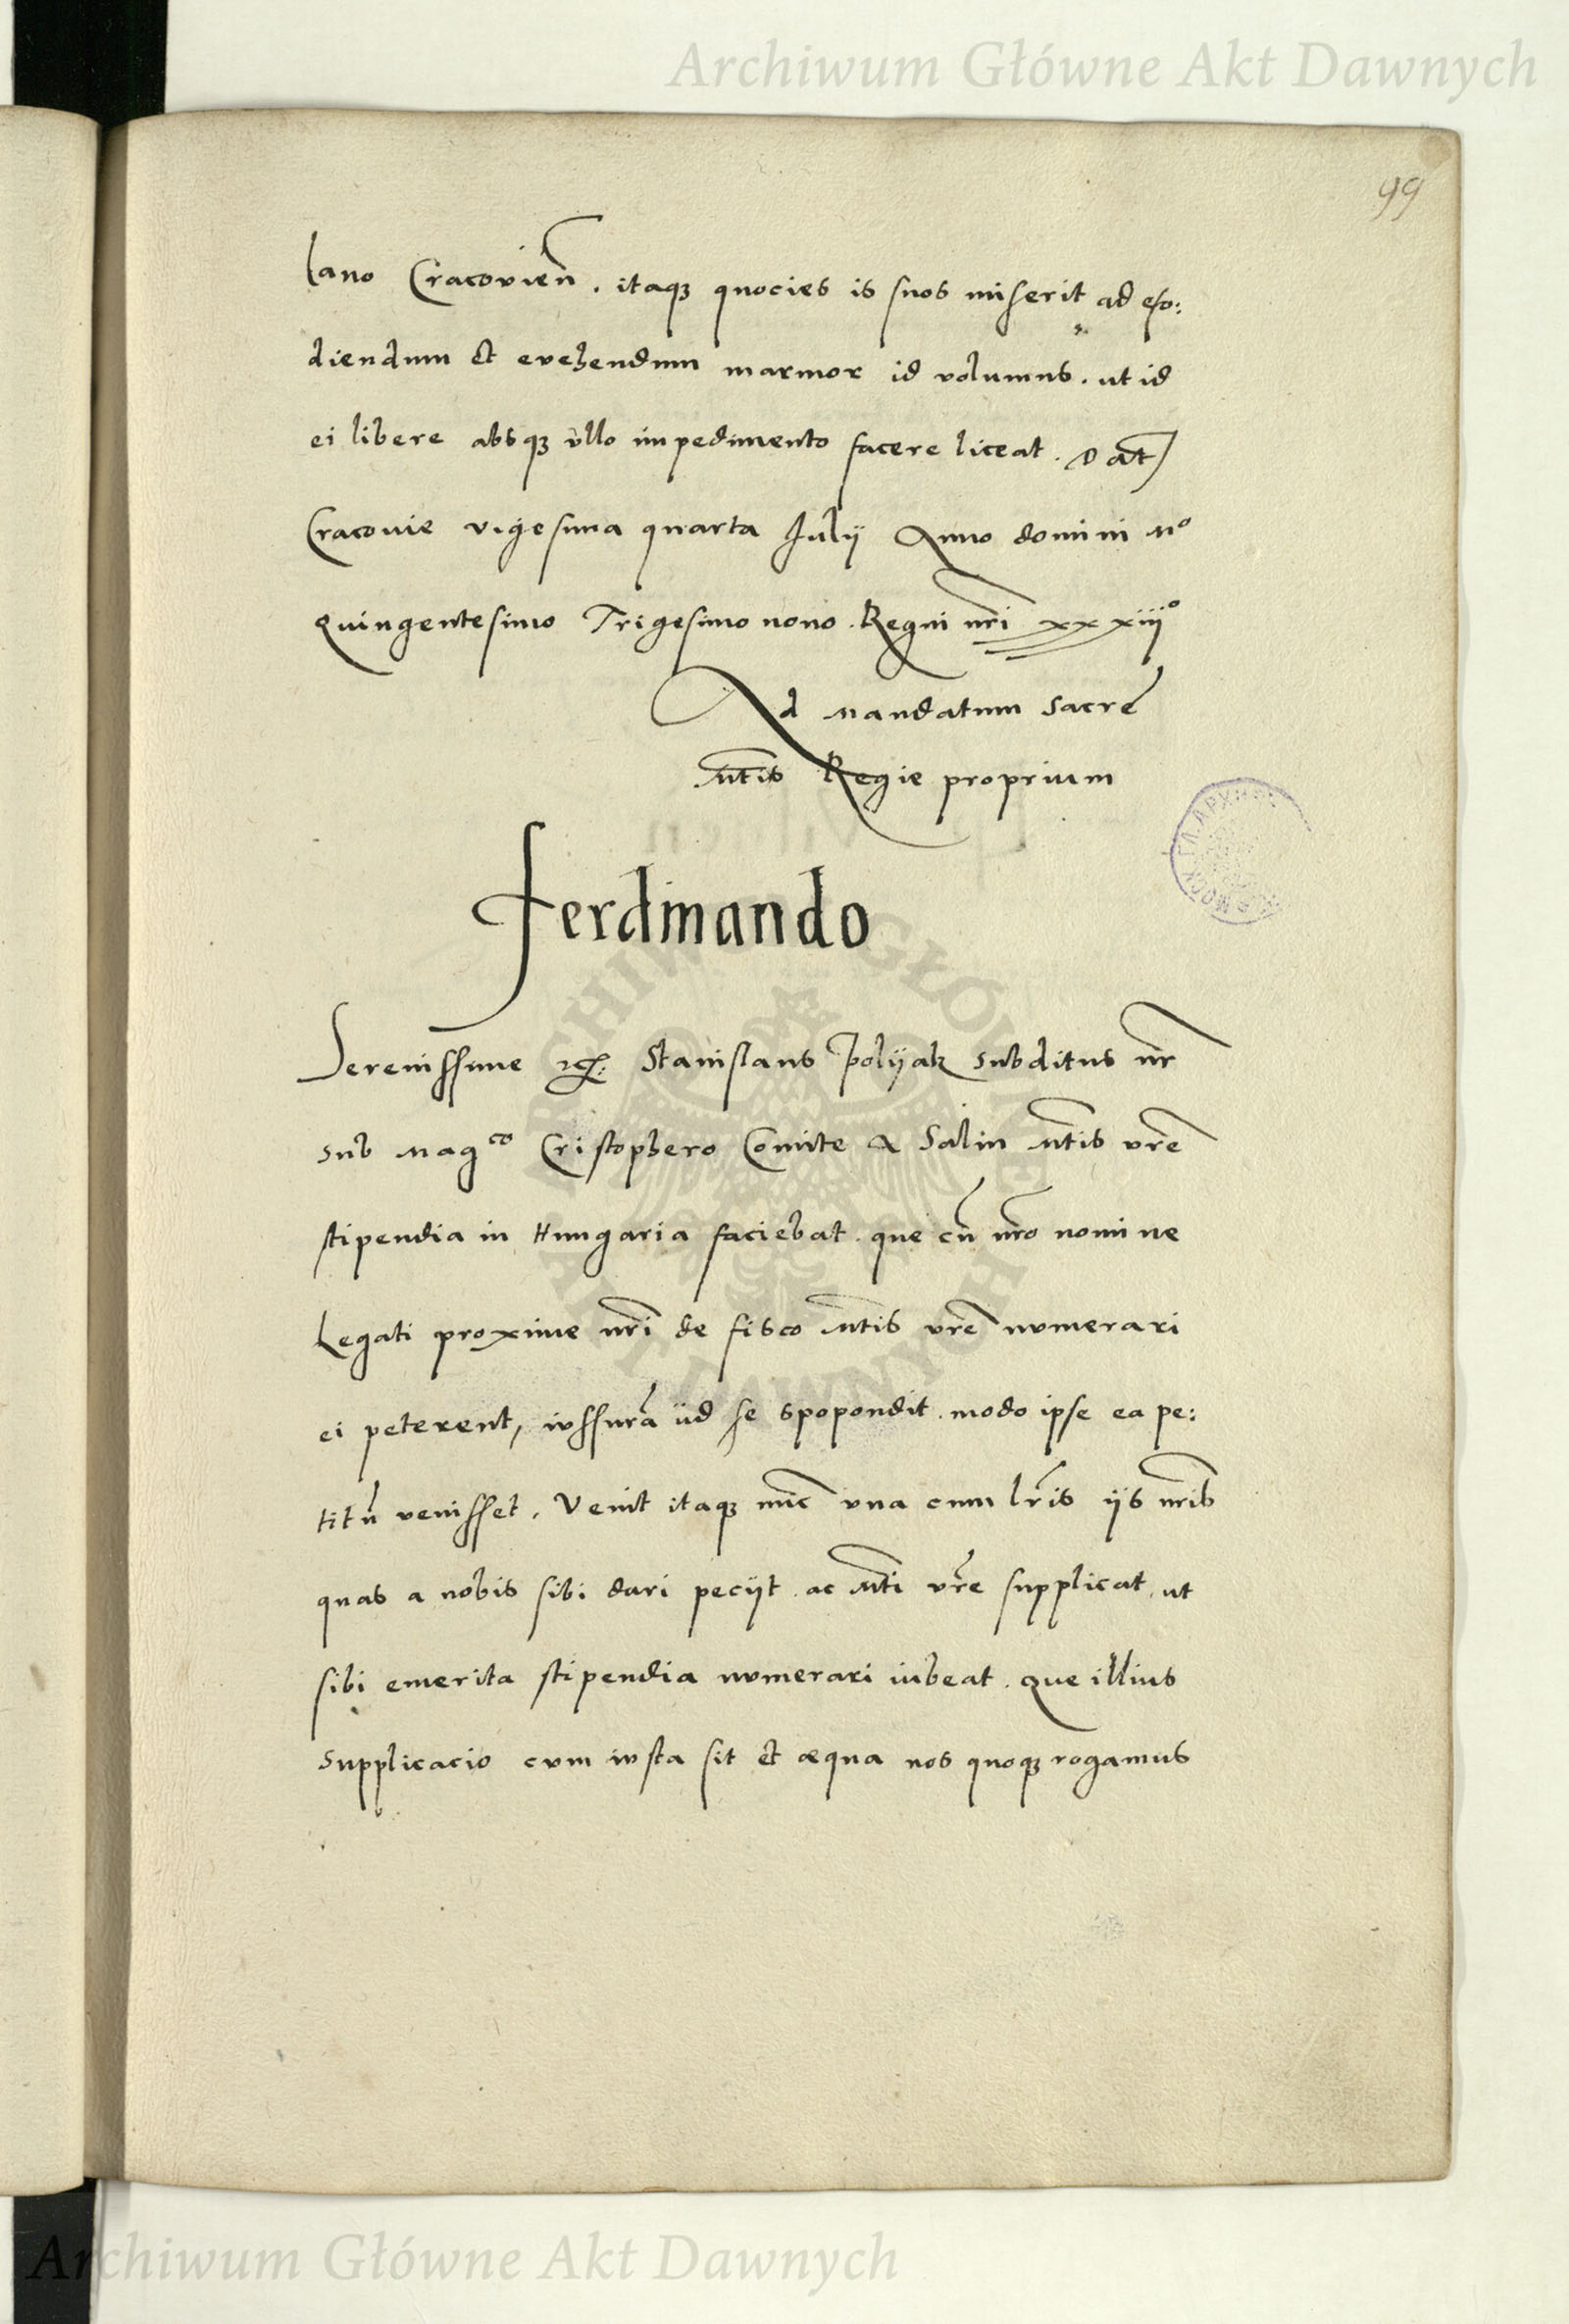 Archiwum Główne Akt Dawnych
99
lano Cracovien̄. itaqꝫ quocies is suos miserit ad efo:
diendum et evehendum marmor id volumus. ut id
ei libere absqꝫ ullo impedimento facere liceat. Dat
Cracovie vigesima quarta Julij Anno domini Mº
Quingentesimo Trigesimo nono. Regni nr̄i xxxiijº
Ad mandatum Sacre
Mtis Regie proprium
Ferdinando
Serenissime Stanislaus Polijak subditus nr̄
sub Magco Cristophero Comite a Salin Mtis vrē
stipendia in Hungaria faciebat. que cū nrō nomine
Legati proxime nrī de fisco Mtis vrē numerari
ei peterent, iussurā iid se spopondit. modo ipse ea pe:
titū venisset. Venit itaqꝫ nūc una cum lrīs ijs nrīs
quas a nobis sibi dari pecijt. ac Mti vrē supplicat, ut
sibi emerita stipendia numerari iubeat. Que illius
supplicacio cum iusta sit et aequa nos quoqꝫ rogamus
Archiwum Główne Akt Dawnych